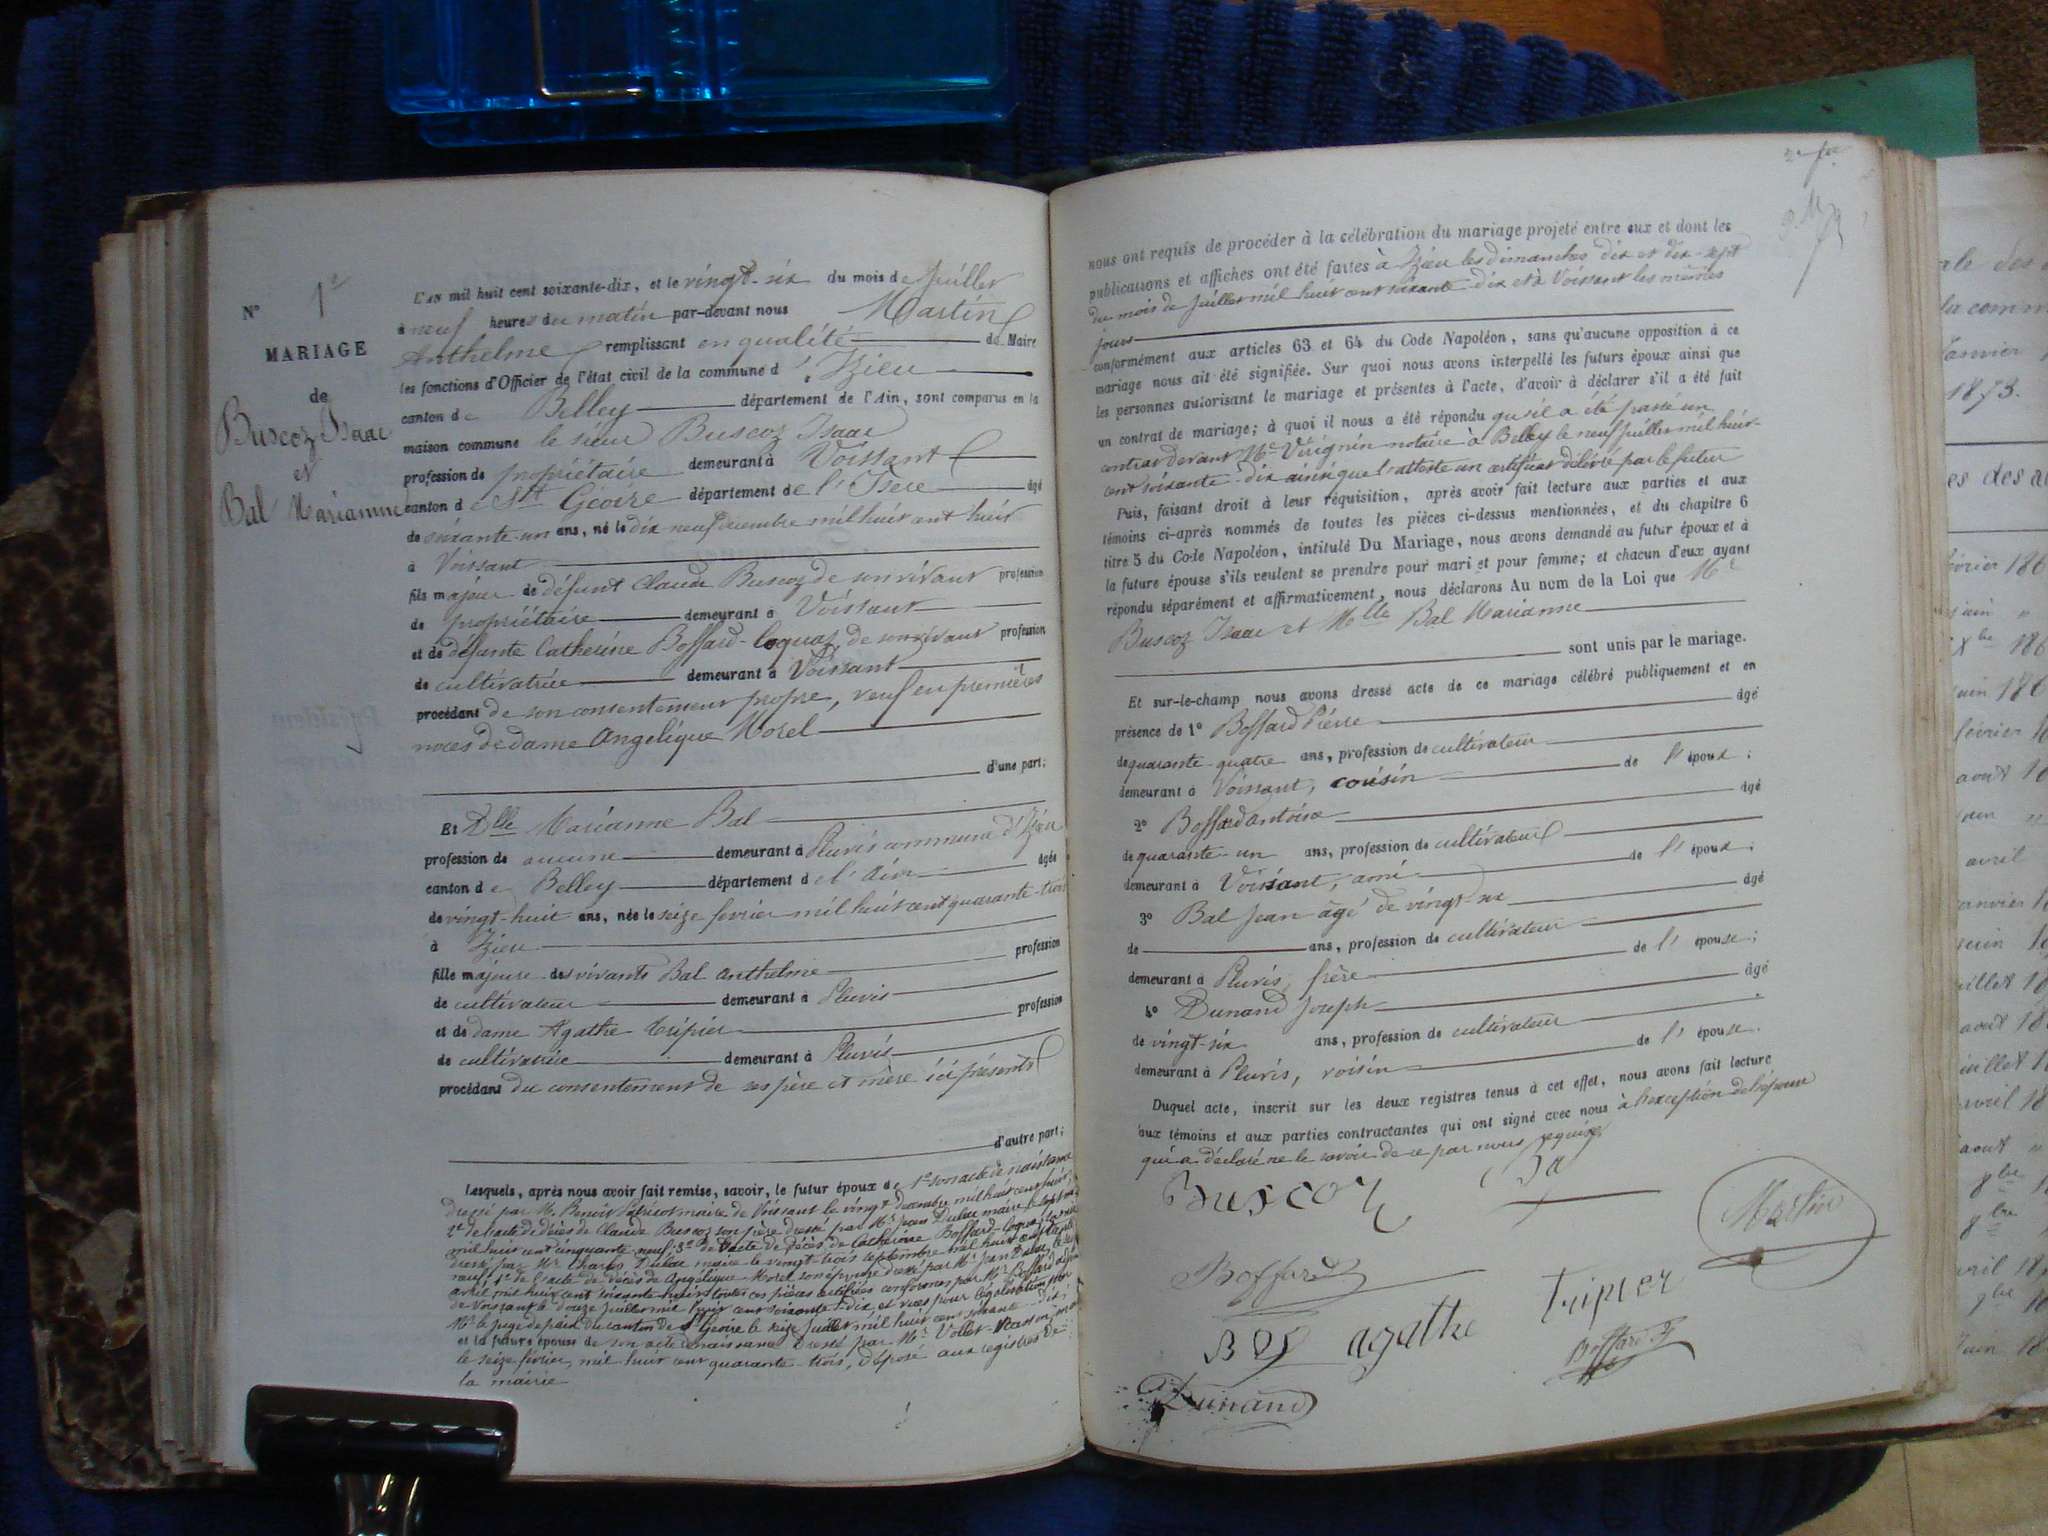 N° 1er
MARIAGE
de
Buscoz Isaac
et
Bal Marianne
L'AN mil huit cent soixante-dix, et le vingt-six du mois de juillet
à neuf heures du matin par-devant nous Martin
Anthelme remplissant en qualité de Maire
les fonctions d'Officier de l'état civil de la commune d'Izieu
canton de Belley département de l'Ain, sont comparus en la
maison commune le sieur Buscoz Isaac
profession de propriétaire demeurant à Voissant
canton de St Geoire département de l'Isère âgé
de soixante-un ans, né le dix neuf décembre mil huit cent huit
à Voissant
fils majeur de défunt Claude Buscoz de son vivant profession
de propriétaire demeurant à Voissant
et de défunte Catherine Boffard-Coquat, de son vivant profession
de cultivatrice demeurant à Voissant
procédant de son consentement propre, veuf en premières
noces de dame Angélique Morel
d'une part;
Et Dlle Marianne Bal
profession de aucune demeurant à Pluvis commune d'Izieu
canton de Belley département de l'Ain âgée
de vingt-huit ans, née le seize fevrier mil huit cent quarante-trois
à Izieu
fille majeure des vivants Bal Anthelme profession
de cultivateur demeurant à Pluvis
et de dame Agathe Tripier profession
de cultivatrice demeurant à Pluvis
procédant du consentement de ses père et mère ici présents
d'autre part;
Lesquels, après nous avoir fait remise, savoir, le futur époux de 1° son acte de naissance
dressé par M. Benoit maire de Voissant le vingt décembre mil huit cent huit;
2° de l'acte de décès de Claude Buscoz son père dressé par Mr Jean Dulac maire
mil huit cent cinquante neuf; 3° de l'acte de décès de Catherine Boffard-Coquat sa mère
dressé par Mr Charles Dulac maire le vingt-trois septembre mil huit cent
neuf; 4° de l'acte de décès de Angélique Morel son épouse dressé par Mr Jean Dulac le
avril mil huit cent soixante huit toutes ces pièces certifiées conformes par Mr Boffard
de Voissant le douze juillet mil huit cent soixante-dix, et vues pour légalisation par
Mr le juge de paix du canton de St Geoire le seize juillet mil huit cent soixante-dix;
et la future épouse de son acte de naissance dressé par Mr Vollet
le seize février mil huit cent quarante-trois, déposé aux registres de
la mairie
nous ont requis de procéder à la célébration du mariage projeté entre eux et dont les
publications et affiches ont été faites à Izieu les dimanches dix et dix-sept
du mois de juillet mil huit cent soixante-dix et à Voissant les mêmes
jours
conformément aux articles 63 et 64 du Code Napoléon, sans qu'aucune opposition à ce
mariage nous ait été signifiée. Sur quoi nous avons interpellé les futurs époux ainsi que
les personnes autorisant le mariage et présentes à l'acte, d'avoir à déclarer s'il a été fait
un contrat de mariage; à quoi il nous a été répondu qu'il a été passé un
contrat devant Me Vérignin notaire à Belley le neuf juillet mil huit-
cent soixante-dix ainsi que l'atteste un certificat délivré par le futur
Puis, faisant droit à leur réquisition, après avoir fait lecture aux parties et aux
témoins ci-après nommés de toutes les pièces ci-dessus mentionnées, et du chapitre 6
titre 5 du Code Napoléon, intitulé Du Mariage, nous avons demandé au futur époux et à
la future épouse s'ils veulent se prendre pour mari et pour femme; et chacun d'eux ayant
répondu séparément et affirmativement, nous déclarons Au nom de la Loi que Mr
Buscoz Isaac et Mlle Bal Marianne
sont unis par le mariage.
Et sur-le-champ nous avons dressé acte de ce mariage célébré publiquement et en
présence de 1° Boffard Pierre âgé
de quarante-quatre ans, profession de cultivateur
demeurant à Voissant, cousin de l'époux;
2° Boffard Antoine âgé
de quarante-un ans, profession de cultivateur
demeurant à Voissant, ami de l'époux;
3° Bal Jean âgé de vingt-un âgé
de ans, profession de cultivateur
demeurant à Pluvis, frère de l'épouse;
4° Dunand Joseph âgé
de vingt-six ans, profession de cultivateur
demeurant à Pluvis, voisin de l'épouse.
Duquel acte, inscrit sur les deux registres tenus à cet effet, nous avons fait lecture
aux témoins et aux parties contractantes qui ont signé avec nous à l'exception de l'épouse
qui a déclaré ne le savoir de ce par nous requise
Buscoz
Martin
Boffard
Bal agathe tripier
Boffard
Dunand
1873.